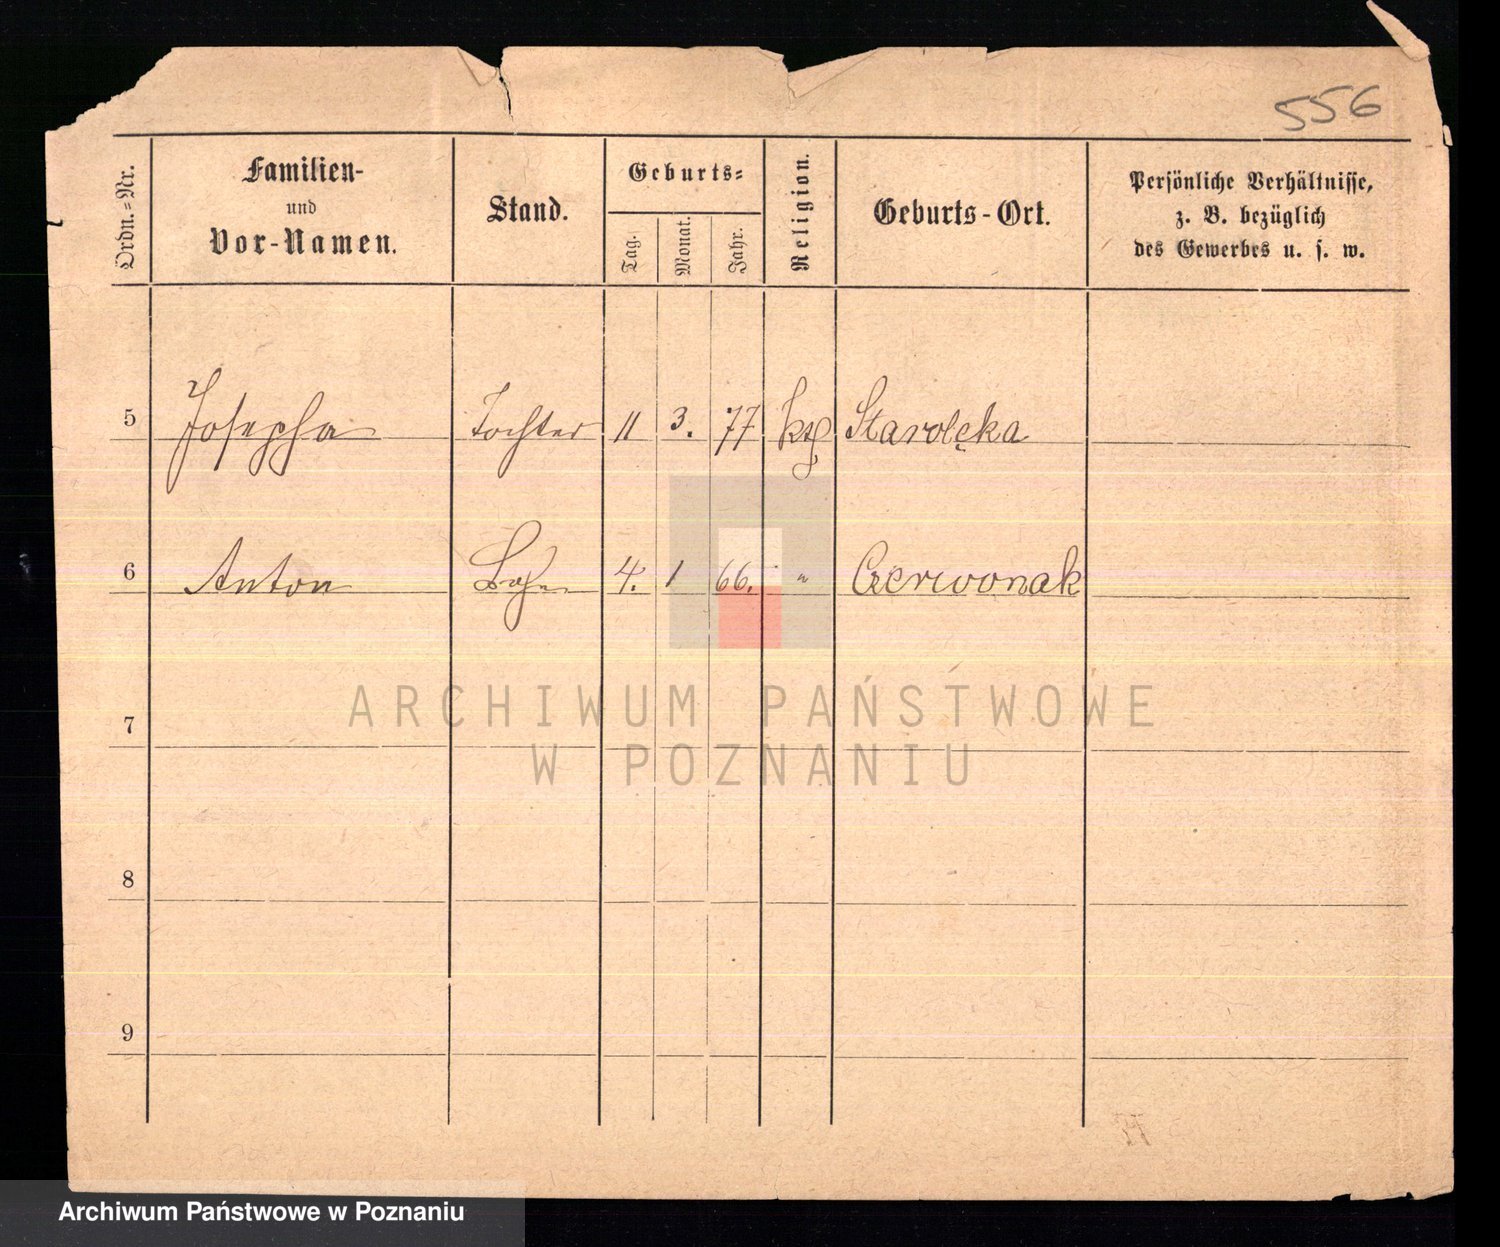 556
Ordn.=Nr.
Familien-
und
Vor-Namen.
Stand.
Geburts=
Tag.
Monat.
Jahr.
Religion.
Geburts-Ort.
Persönliche Verhältnisse,
z. B. bezüglich
des Gewerbes u. s. w.
5 Josepha Tochter 11 3. 77 Starolęka
6 Anton Sohn 4. 1 66. " Czerwonak
7
8
9
ARCHIWUM PAŃSTWOWE
W POZNANIU
Archiwum Państwowe w Poznaniu